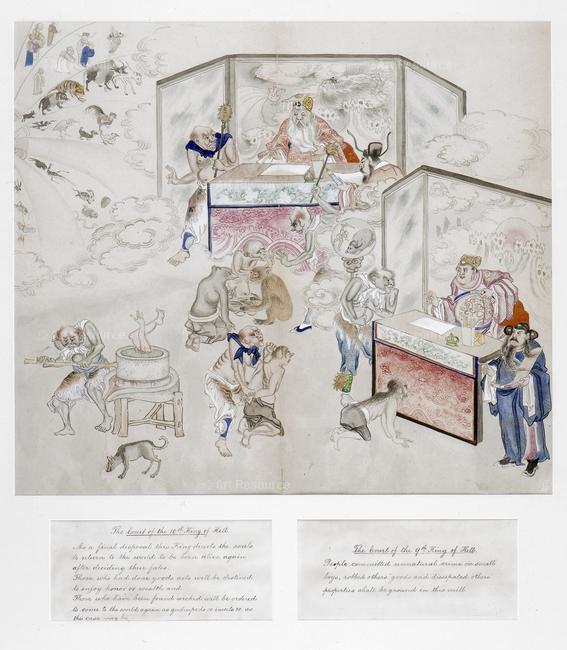 The Court of the 10th King of Hell
As a final disposal this King directs the souls
to return to the world to be born alive again
after deciding their fates.
Those who had done goods acts will be destined
to enjoy honor or wealth and
Those who have been found wicked will be ordered
to come to the world again as quadrupeds or insects &c as
the case may be.
The Court of the 9th King of Hell
People committed unnatural crime on small
boys, robbed others goods and dissipated others
properties shall be ground in this mill.
Art Resource